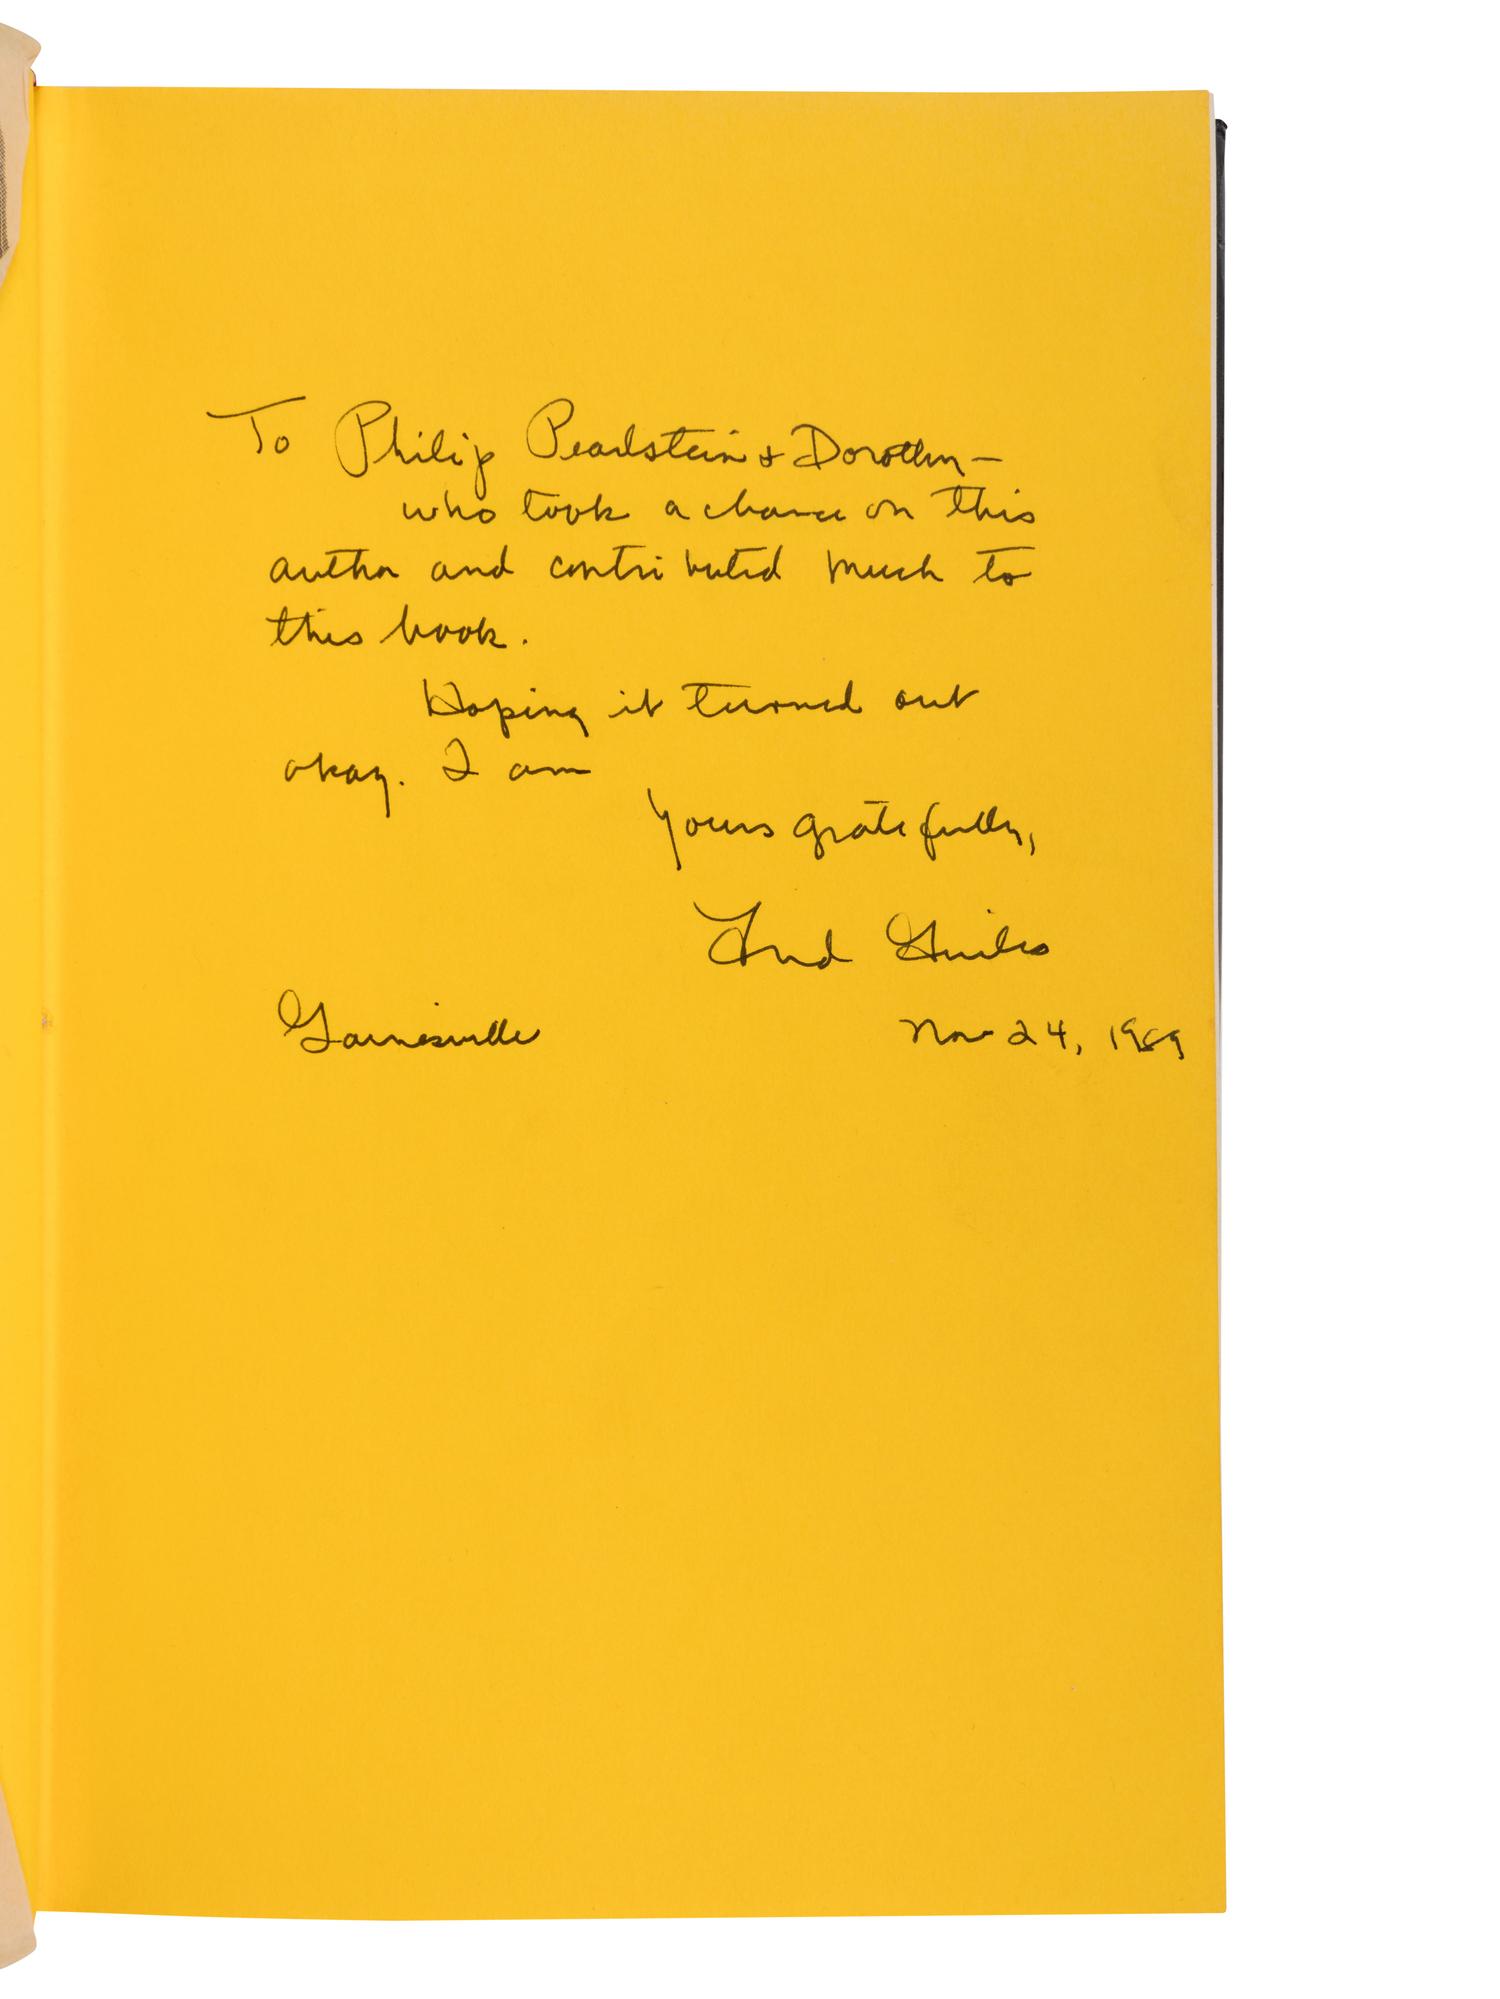 To Philip Pearlstein & Dorothy —
who took a chance on this
author and contributed much to
this book.
Hoping it turned out
okay. I am
Yours gratefully,
Fred Guiles
Gainesville Nov 24, 1989